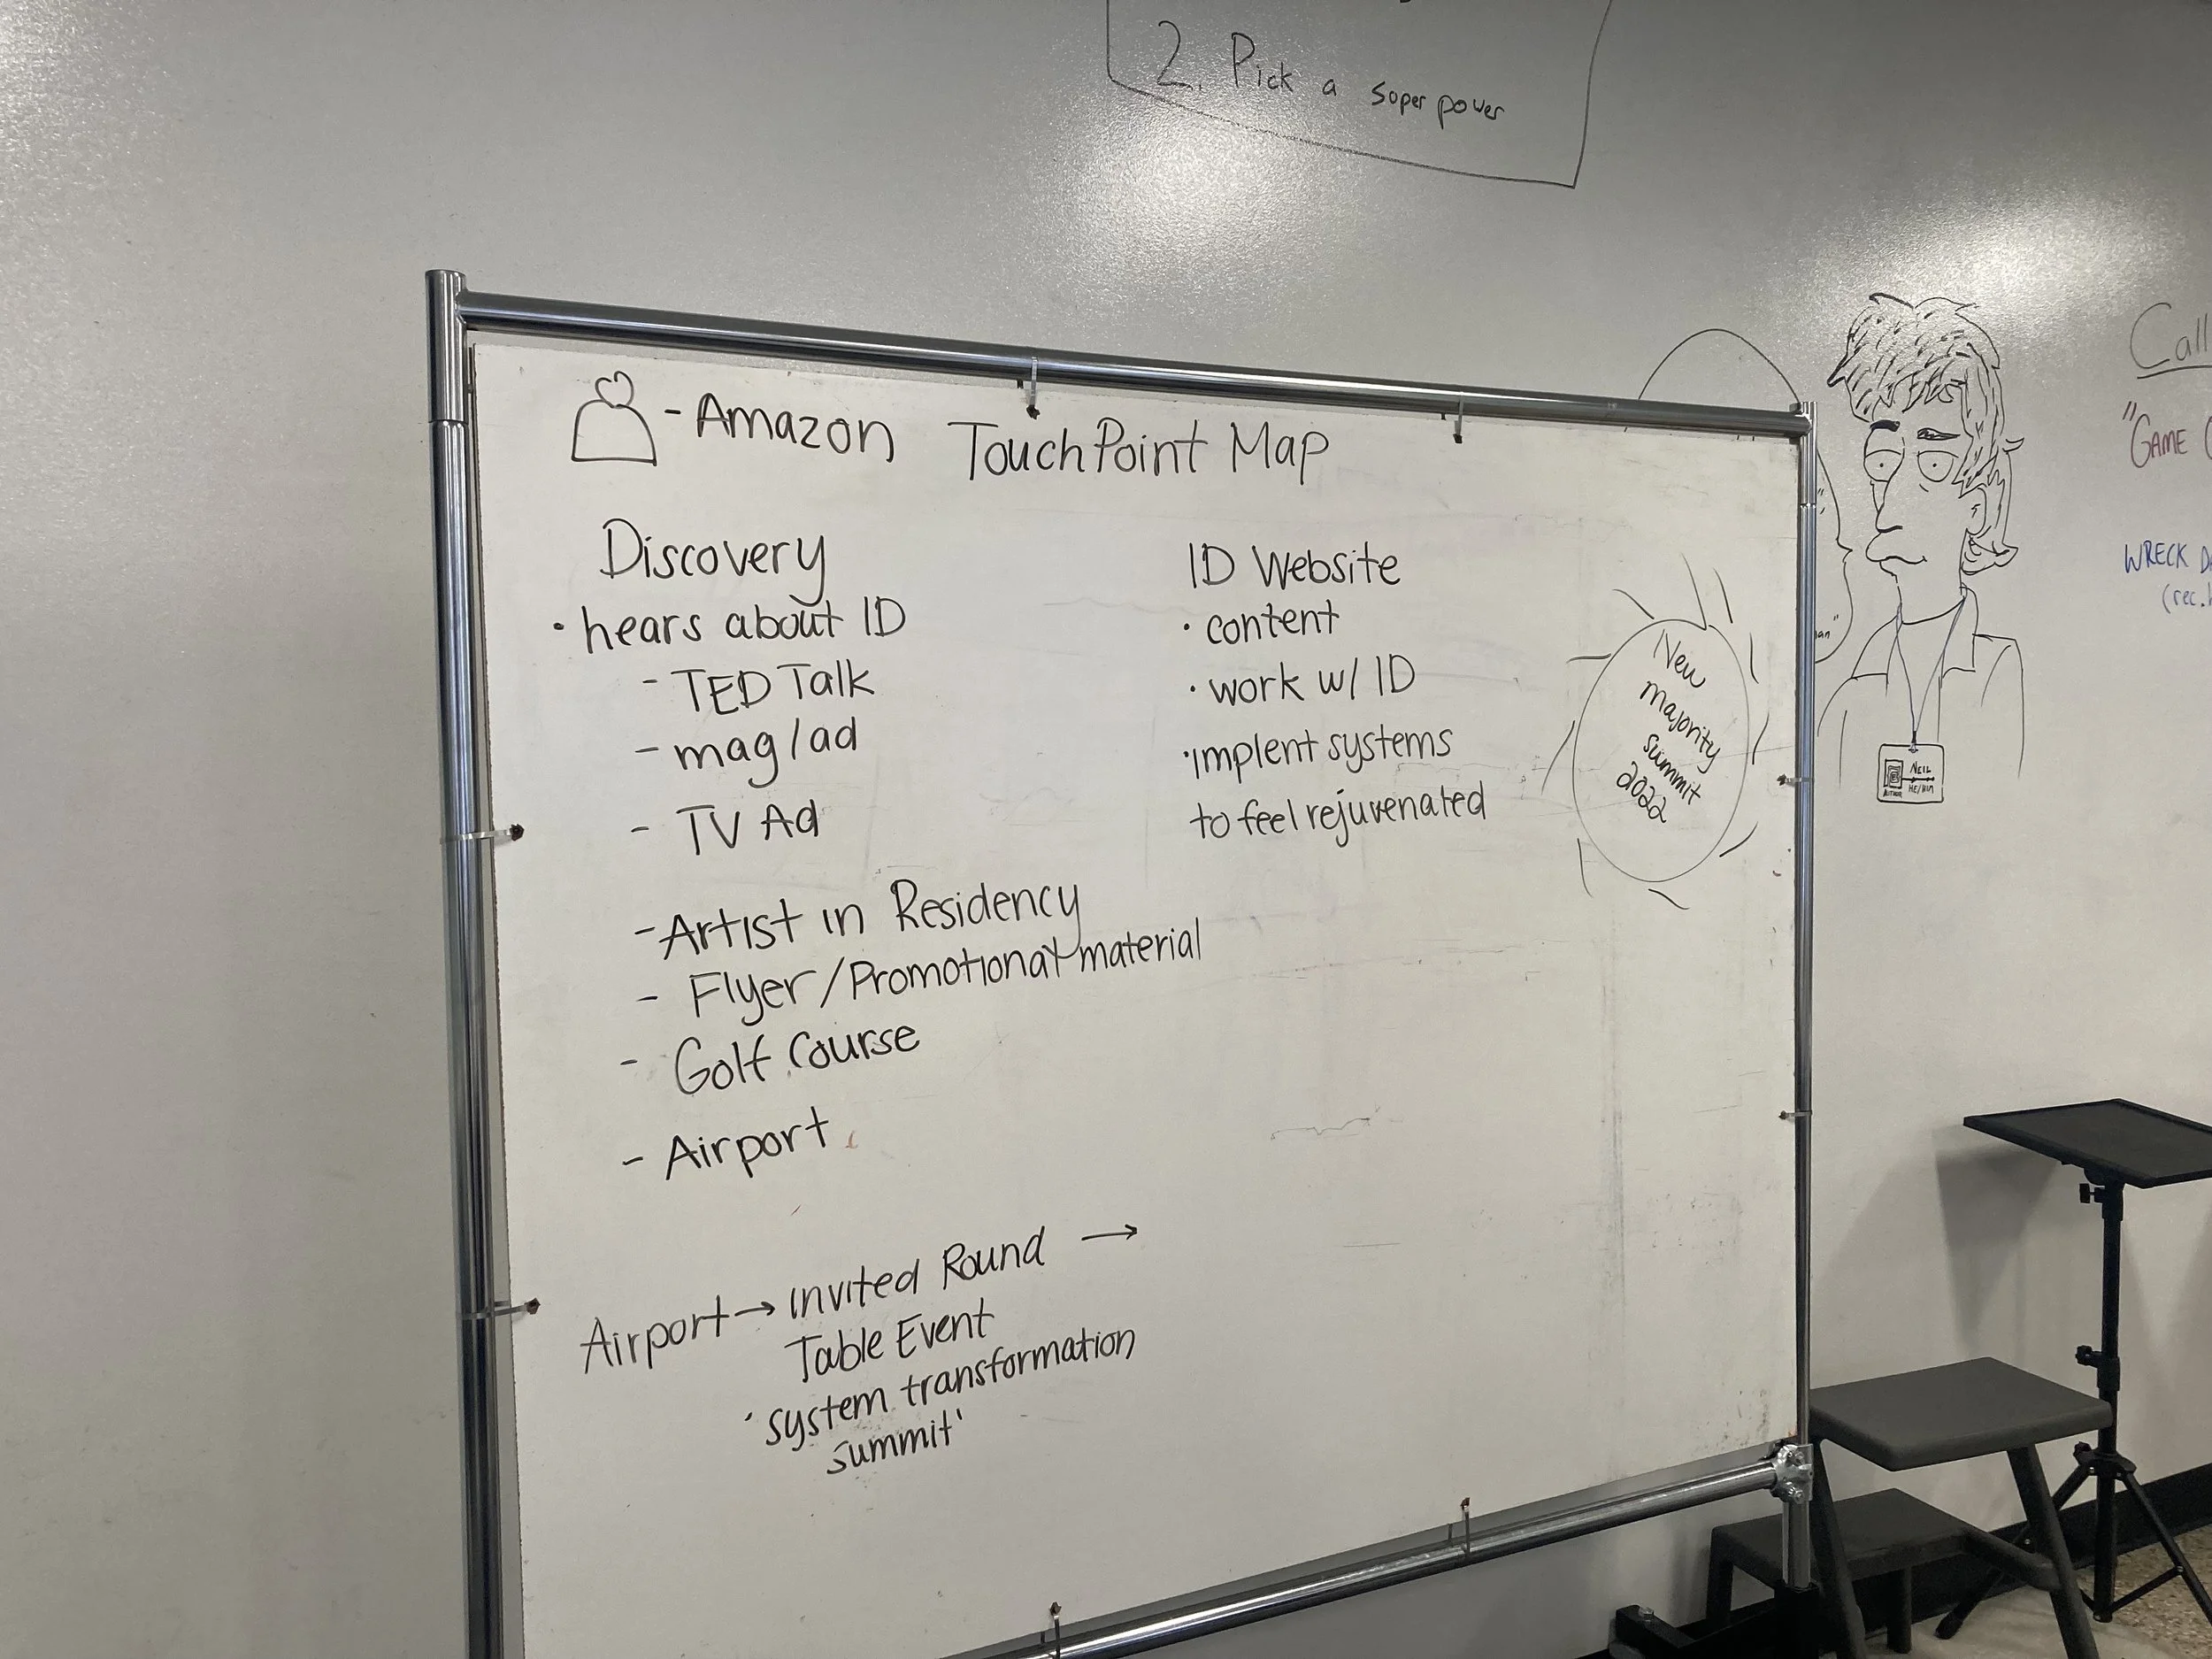 2. Pick a soper power
- Amazon TouchPoint Map
Discovery
• hears about ID
- TED Talk
- mag/ad
- TV Ad
- Artist in Residency
- Flyer/Promotional material
- Golf Course
- Airport
Airport → Invited Round →
Table Event
'system transformation
summit'
ID Website
• content
• work w/ ID
• implent systems
to feel rejuvenated
New
majority
summit
2022
NEIL
HE/HIM
AUTHOR
Call
"GAME
WRECK
(rec.